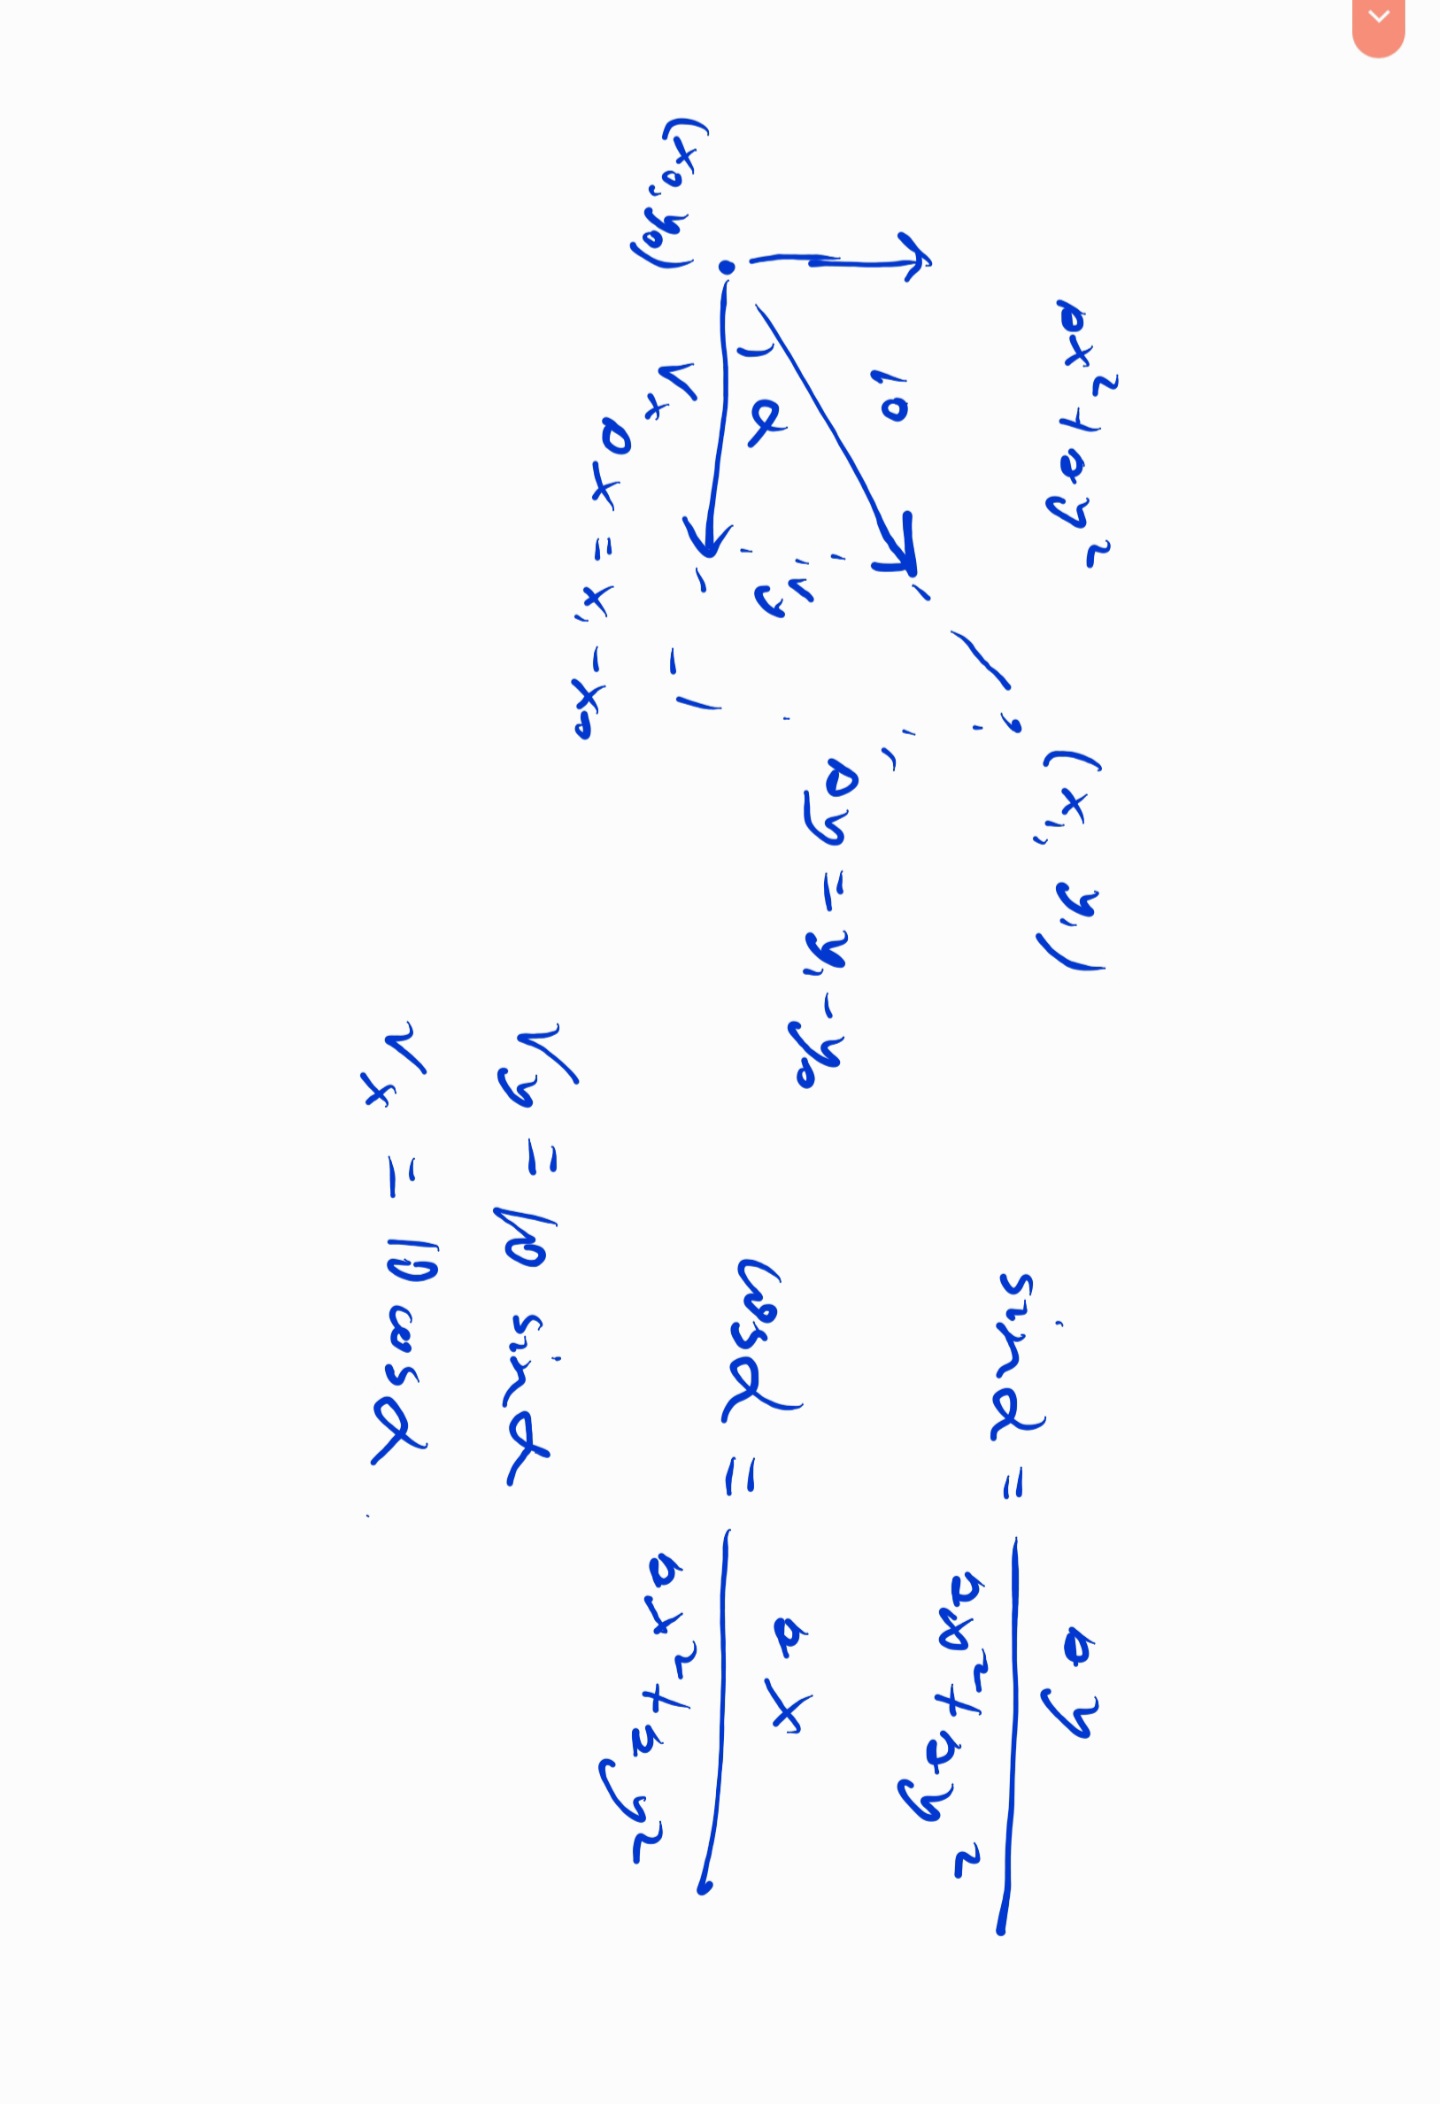 Δx²+Δy²
(x₁, y₁)
10
α
Vy
(x₀, y₀)
Vx
Δy = y₁ - y₀
Δx = x₁ - x₀
sinα = Δy / Δx²+Δy²
cosα = Δx / Δx²+Δy²
Vy = 10 sinα
Vx = 10 cosα